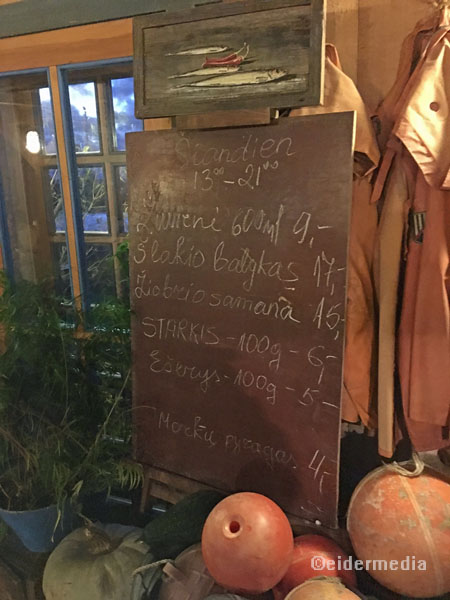 Šiandien
13⁰⁰-21⁰⁰
600ml 9,-
Šlakio 17,-
Žiobrio 15,-
STARKIS - 100g - 6,-
Ešerys - 100g - 5,-
Morkų pyragas 4,-
©eidermedia